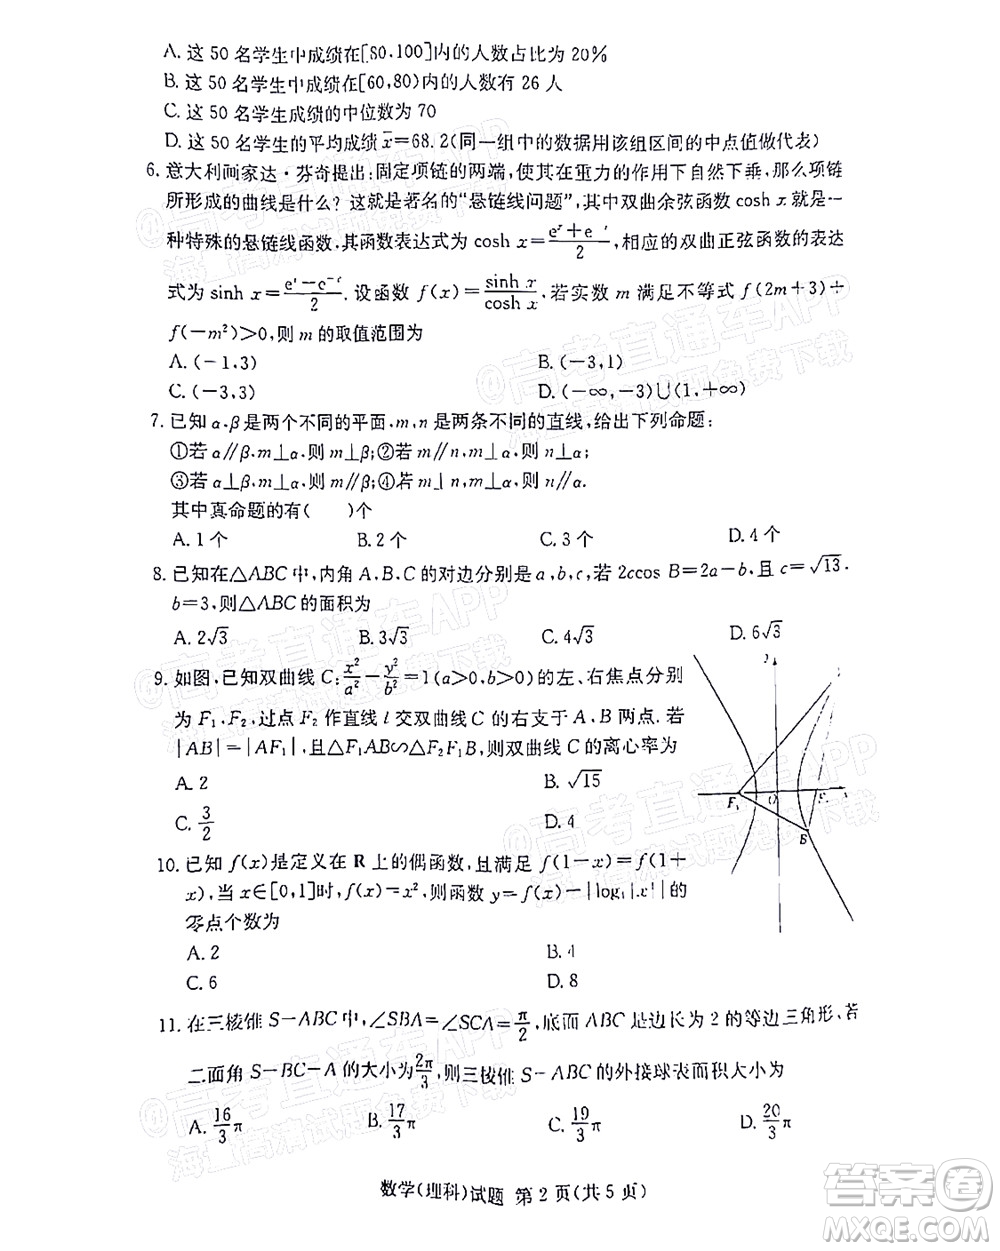 A. 这 50 名学生中成绩在[80,100]内的人数占比为 20%
B. 这 50 名学生中成绩在[60,80)内的人数有 26 人
C. 这 50 名学生成绩的中位数为 70
D. 这 50 名学生的平均成绩 x̄=68.2(同一组中的数据用该组区间的中点值做代表)
6. 意大利画家达·芬奇提出:固定项链的两端,使其在重力的作用下自然下垂,那么项链
所形成的曲线是什么?这就是著名的“悬链线问题”,其中双曲余弦函数 cosh x 就是一
种特殊的悬链线函数.其函数表达式为 cosh x=(eˣ+e⁻ˣ)/2,相应的双曲正弦函数的表达
式为 sinh x=(eˣ−e⁻ˣ)/2.设函数 f(x)=sinh x/cosh x,若实数 m 满足不等式 f(2m+3)+
f(−m²)>0,则 m 的取值范围为
A.(−1,3) B.(−3,1)
C.(−3,3) D.(−∞,−3)∪(1,+∞)
7. 已知 α,β 是两个不同的平面,m,n 是两条不同的直线,给出下列命题:
①若 α∥β,m⊥α,则 m⊥β;②若 m∥n,m⊥α,则 n⊥α;
③若 α⊥β,m⊥α,则 m∥β;④若 m⊥n,m⊥α,则 n∥α.
其中真命题的有( )个
A.1 个 B.2 个 C.3 个 D.4 个
8. 已知在△ABC 中,内角 A,B,C 的对边分别是 a,b,c,若 2ccos B=2a−b,且 c=√13,
b=3,则△ABC 的面积为
A.2√3 B.3√3 C.4√3 D.6√3
9. 如图,已知双曲线 C:x²/a²−y²/b²=1(a>0,b>0)的左、右焦点分别
为 F₁,F₂,过点 F₂ 作直线 l 交双曲线 C 的右支于 A,B 两点.若
|AB|=|AF₁|,且△F₁AB∽△F₂F₁B,则双曲线 C 的离心率为
A.2 B.√15
C.3/2 D.4
F₁ O B
10. 已知 f(x)是定义在 R 上的偶函数,且满足 f(1−x)=f(1+
x),当 x∈[0,1]时,f(x)=x²,则函数 y=f(x)−|log |x||的
零点个数为
A.2 B.4
C.6 D.8
11. 在三棱锥 S−ABC 中,∠SBA=∠SCA=π/2,底面 ABC 是边长为 2 的等边三角形,若
二面角 S−BC−A 的大小为2π/3,则三棱锥 S−ABC 的外接球表面积大小为
A.16/3π B.17/3π C.19/3π D.20/3π
数学(理科)试题 第 2 页(共 5 页)
答案圈
MXQE.COM